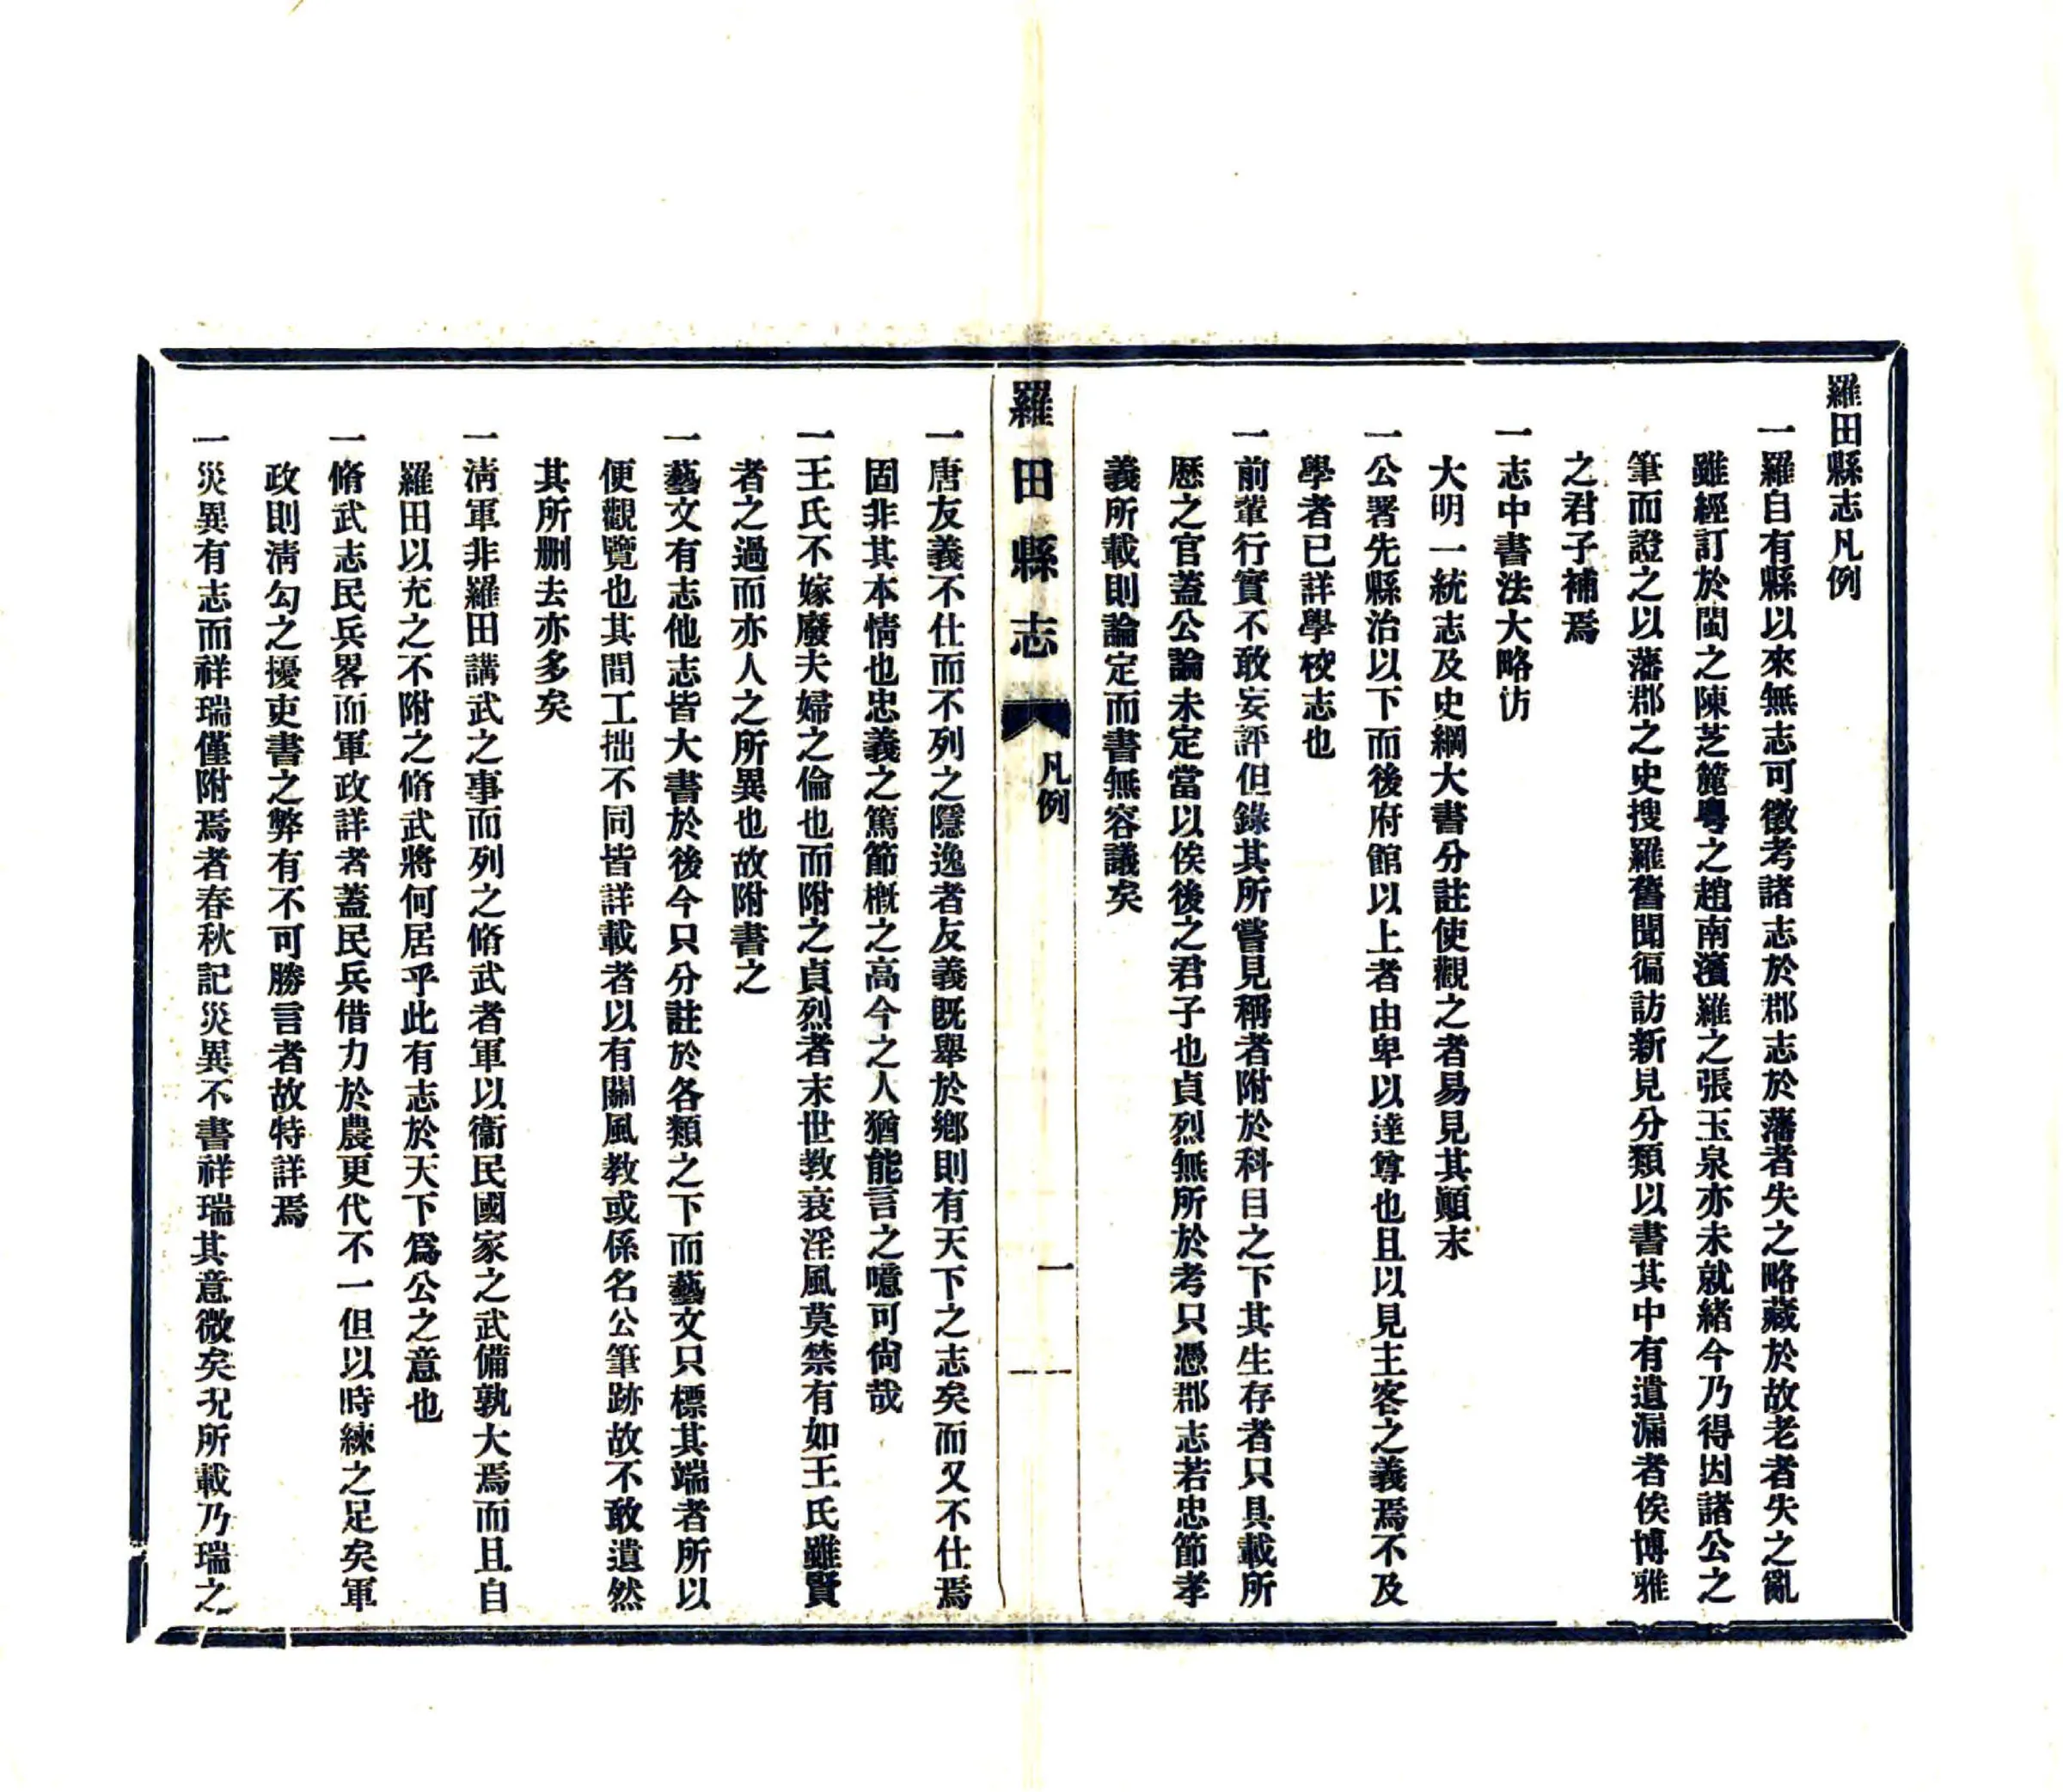 羅田縣志凡例
一羅自有縣以來無志可徵考諸志於郡志於藩者失之略藏於故老者失之亂
雖經訂於閩之陳芝麓粵之趙南濱羅之張玉泉亦未就緒今乃得因諸公之
筆而證之以藩郡之史搜羅舊聞徧訪新見分類以書其中有遺漏者俟博雅
之君子補焉
一志中書法大略訪
大明一統志及史綱大書分註使觀之者易見其顚末
一公署先縣治以下而後府館以上者由卑以達尊也且以見主客之義焉不及
學者已詳學校志也
一前輩行實不敢妄評但錄其所嘗見稱者附於科目之下其生存者只具載所
歷之官蓋公論未定當以俟後之君子也貞烈無所於考只憑郡志若忠節孝
義所載則論定而書無容議矣
羅田縣志
凡例
一
一唐友義不仕而不列之隱逸者友義既舉於鄉則有天下之志矣而又不仕焉
固非其本情也忠義之篤節槪之高今之人猶能言之噫可尙哉
一王氏不嫁廢夫婦之倫也而附之貞烈者末世教衰淫風莫禁有如王氏雖賢
者之過而亦人之所異也故附書之
一藝文有志他志皆大書於後今只分註於各類之下而藝文只標其端者所以
便觀覽也其間工拙不同皆詳載者以有關風教或係名公筆跡故不敢遺然
其所刪去亦多矣
一淸軍非羅田講武之事而列之脩武者軍以衞民國家之武備孰大焉而且自
羅田以充之不附之脩武將何居乎此有志於天下爲公之意也
一脩武志民兵畧而軍政詳者蓋民兵借力於農更代不一但以時練之足矣軍
政則淸勾之擾吏書之弊有不可勝言者故特詳焉
一災異有志而祥瑞僅附焉者春秋記災異不書祥瑞其意微矣況所載乃瑞之